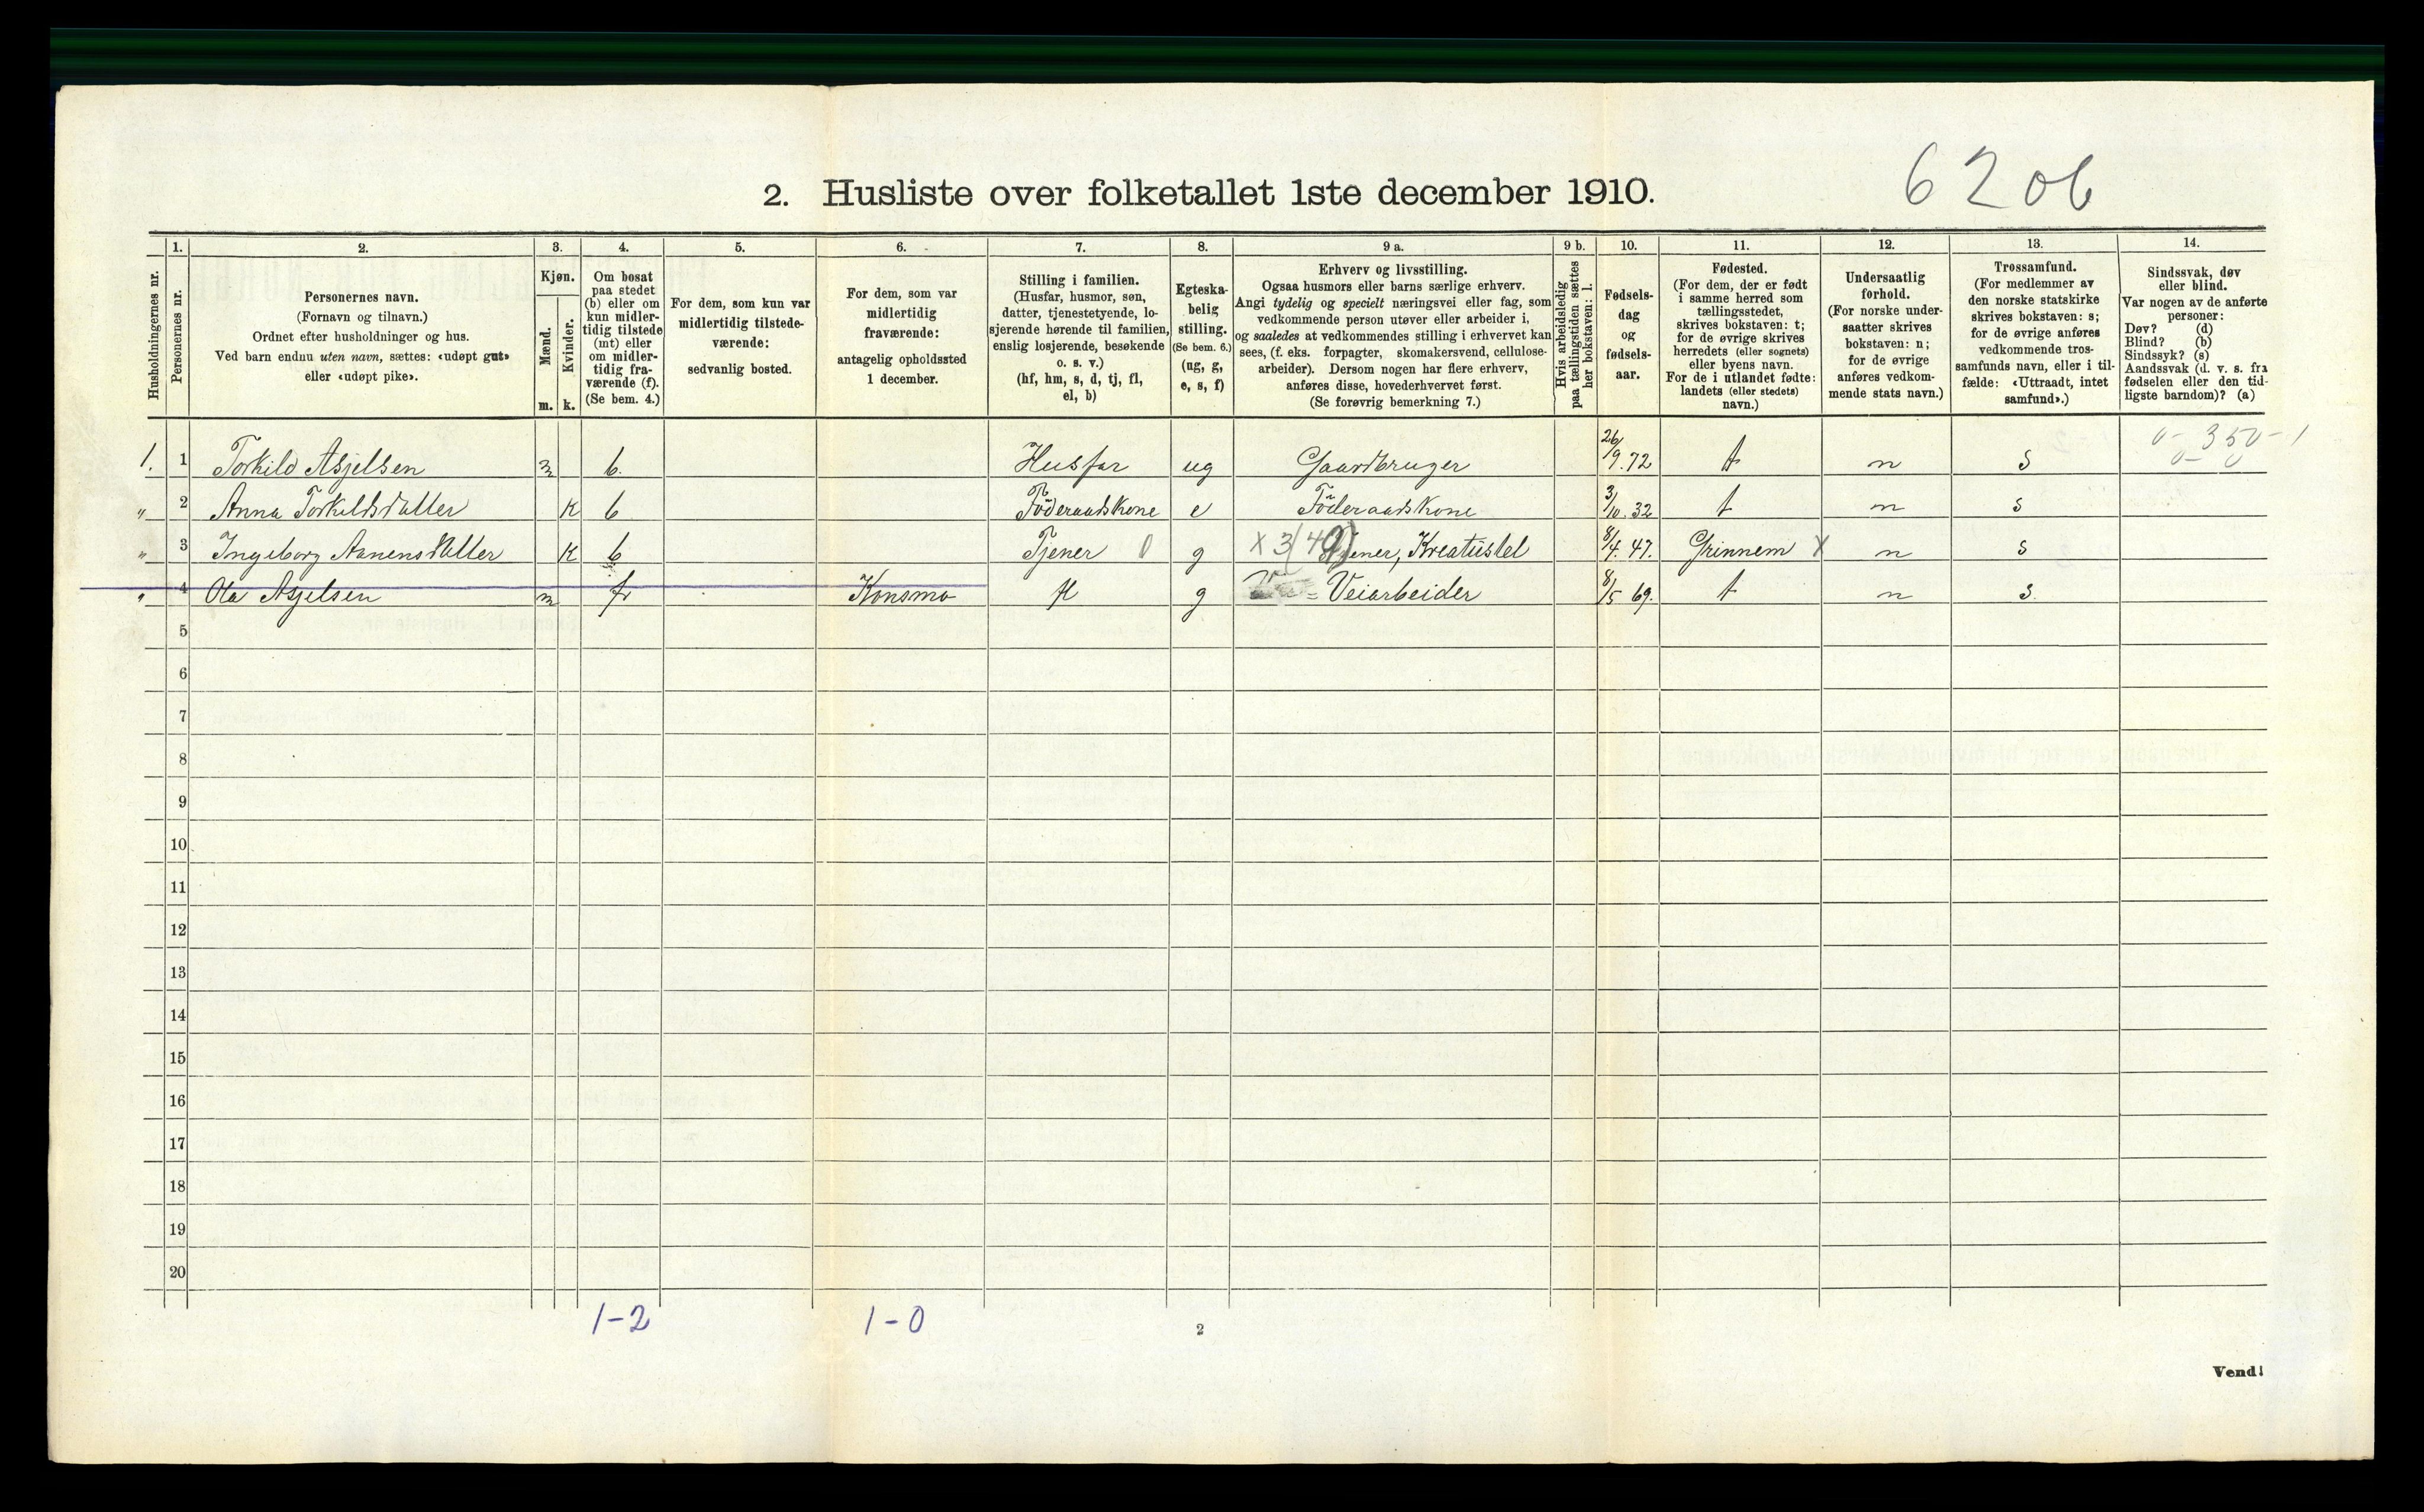 6206
2. Husliste over folketallet 1ste december 1910.
Husholdningernes nr.
1.
Personernes nr.
2.
Personernes navn.
(Fornavn og tilnavn.)
Ordnet efter husholdninger og hus.
Ved barn endnu uten navn, sættes: «udøpt gut»
eller «udøpt pike».
3.
Kjøn.
Mænd.
Kvinder.
m. k.
4.
Om bosat
paa stedet
(b) eller om
kun midler-
tidig tilstede
(mt) eller
om midler-
tidig fra-
værende (f).
(Se bem. 4.)
5.
For dem, som kun var
midlertidig tilstede-
værende:
sedvanlig bosted.
6.
For dem, som var
midlertidig
fraværende:
antagelig opholdssted
1 december.
7.
Stilling i familien.
(Husfar, husmor, søn,
datter, tjenestetyende, lo-
sjerende hørende til familien,
enslig losjerende, besøkende
o. s. v.)
(hf, hm, s, d, tj, fl,
el, b)
8.
Egteska-
belig
stilling.
(Se bem. 6.)
(ug, g,
e, s, f)
9 a.
Erhverv og livsstilling.
Ogsaa husmors eller barns særlige erhverv.
Angi tydelig og specielt næringsvei eller fag, som
vedkommende person utøver eller arbeider i,
og saaledes at vedkommendes stilling i erhvervet kan
sees, (f. eks. forpagter, skomakersvend, cellulose-
arbeider). Dersom nogen har flere erhverv,
anføres disse, hovederhvervet først.
(Se forøvrig bemerkning 7.)
9 b.
Hvis arbeidsledig
paa tællingstiden sættes
her bokstaven: l.
10.
Fødsels-
dag
og
fødsels-
aar.
11.
Fødested.
(For dem, der er født
i samme herred som
tællingsstedet,
skrives bokstaven: t;
for de øvrige skrives
herredets (eller sognets)
eller byens navn.
For de i utlandet fødte:
landets (eller stedets)
navn.)
12.
Undersaatlig
forhold.
(For norske under-
saatter skrives
bokstaven: n;
for de øvrige
anføres vedkom-
mende stats navn.)
13.
Trossamfund.
(For medlemmer av
den norske statskirke
skrives bokstaven: s;
for de øvrige anføres
vedkommende tros-
samfunds navn, eller i til-
fælde: «Uttraadt, intet
samfund».)
14.
Sindssvak, døv
eller blind.
Var nogen av de anførte
personer:
Døv? (d)
Blind? (b)
Sindssyk? (s)
Aandssvak (d. v. s. fra
fødselen eller den tid-
ligste barndom)? (a)
0-350-1
0- 0
1. 1 Torkild Asjelsen m b. Husfar ug Gaardbruger 26/9.72 t n s
" 2 Anna Torkildsdatter K b Föderaadskone e Föderaadskone 3/10.32 t n s
" 3 Ingeborg Aanensdatter K b Tjener 0 g X 3(40) Tjener, Kreaturstel 8/4.47. Grinnem X n s
" 4 Ola Asjelsen m f Konsmo fl g Veiarbeider 8/5 69. t n s.
5
6
7
8
9
10
11
12
13
14
15
16
17
18
19
20
1-2 1-0
2
Vend!